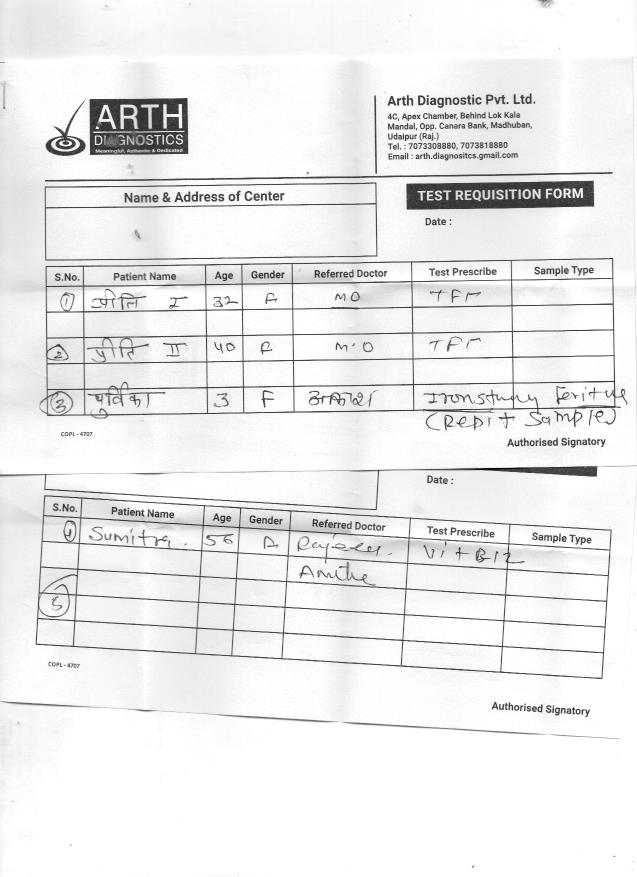 ARTH
DIAGNOSTICS
Meaningful, Authentic & Dedicated
Arth Diagnostic Pvt. Ltd.
4C, Apex Chamber, Behind Lok Kala
Mandal, Opp. Canara Bank, Madhuban,
Udaipur (Raj.)
Tel. : 7073308880, 7073818880
Email : arth.diagnositcs.gmail.com
Name & Address of Center
TEST REQUISITION FORM
Date :
S.No. Patient Name Age Gender Referred Doctor Test Prescribe Sample Type
1 प्रीति I 32 F MO TFT
2 प्रीति II 40 F M.O TFT
3 पुर्विका 3 F Iron
(Repit Sample)
COPL - 4707
Authorised Signatory
Date :
S.No. Patient Name Age Gender Referred Doctor Test Prescribe Sample Type
4 Sumitra. 56 Vit B12
5
COPL - 4707
Authorised Signatory